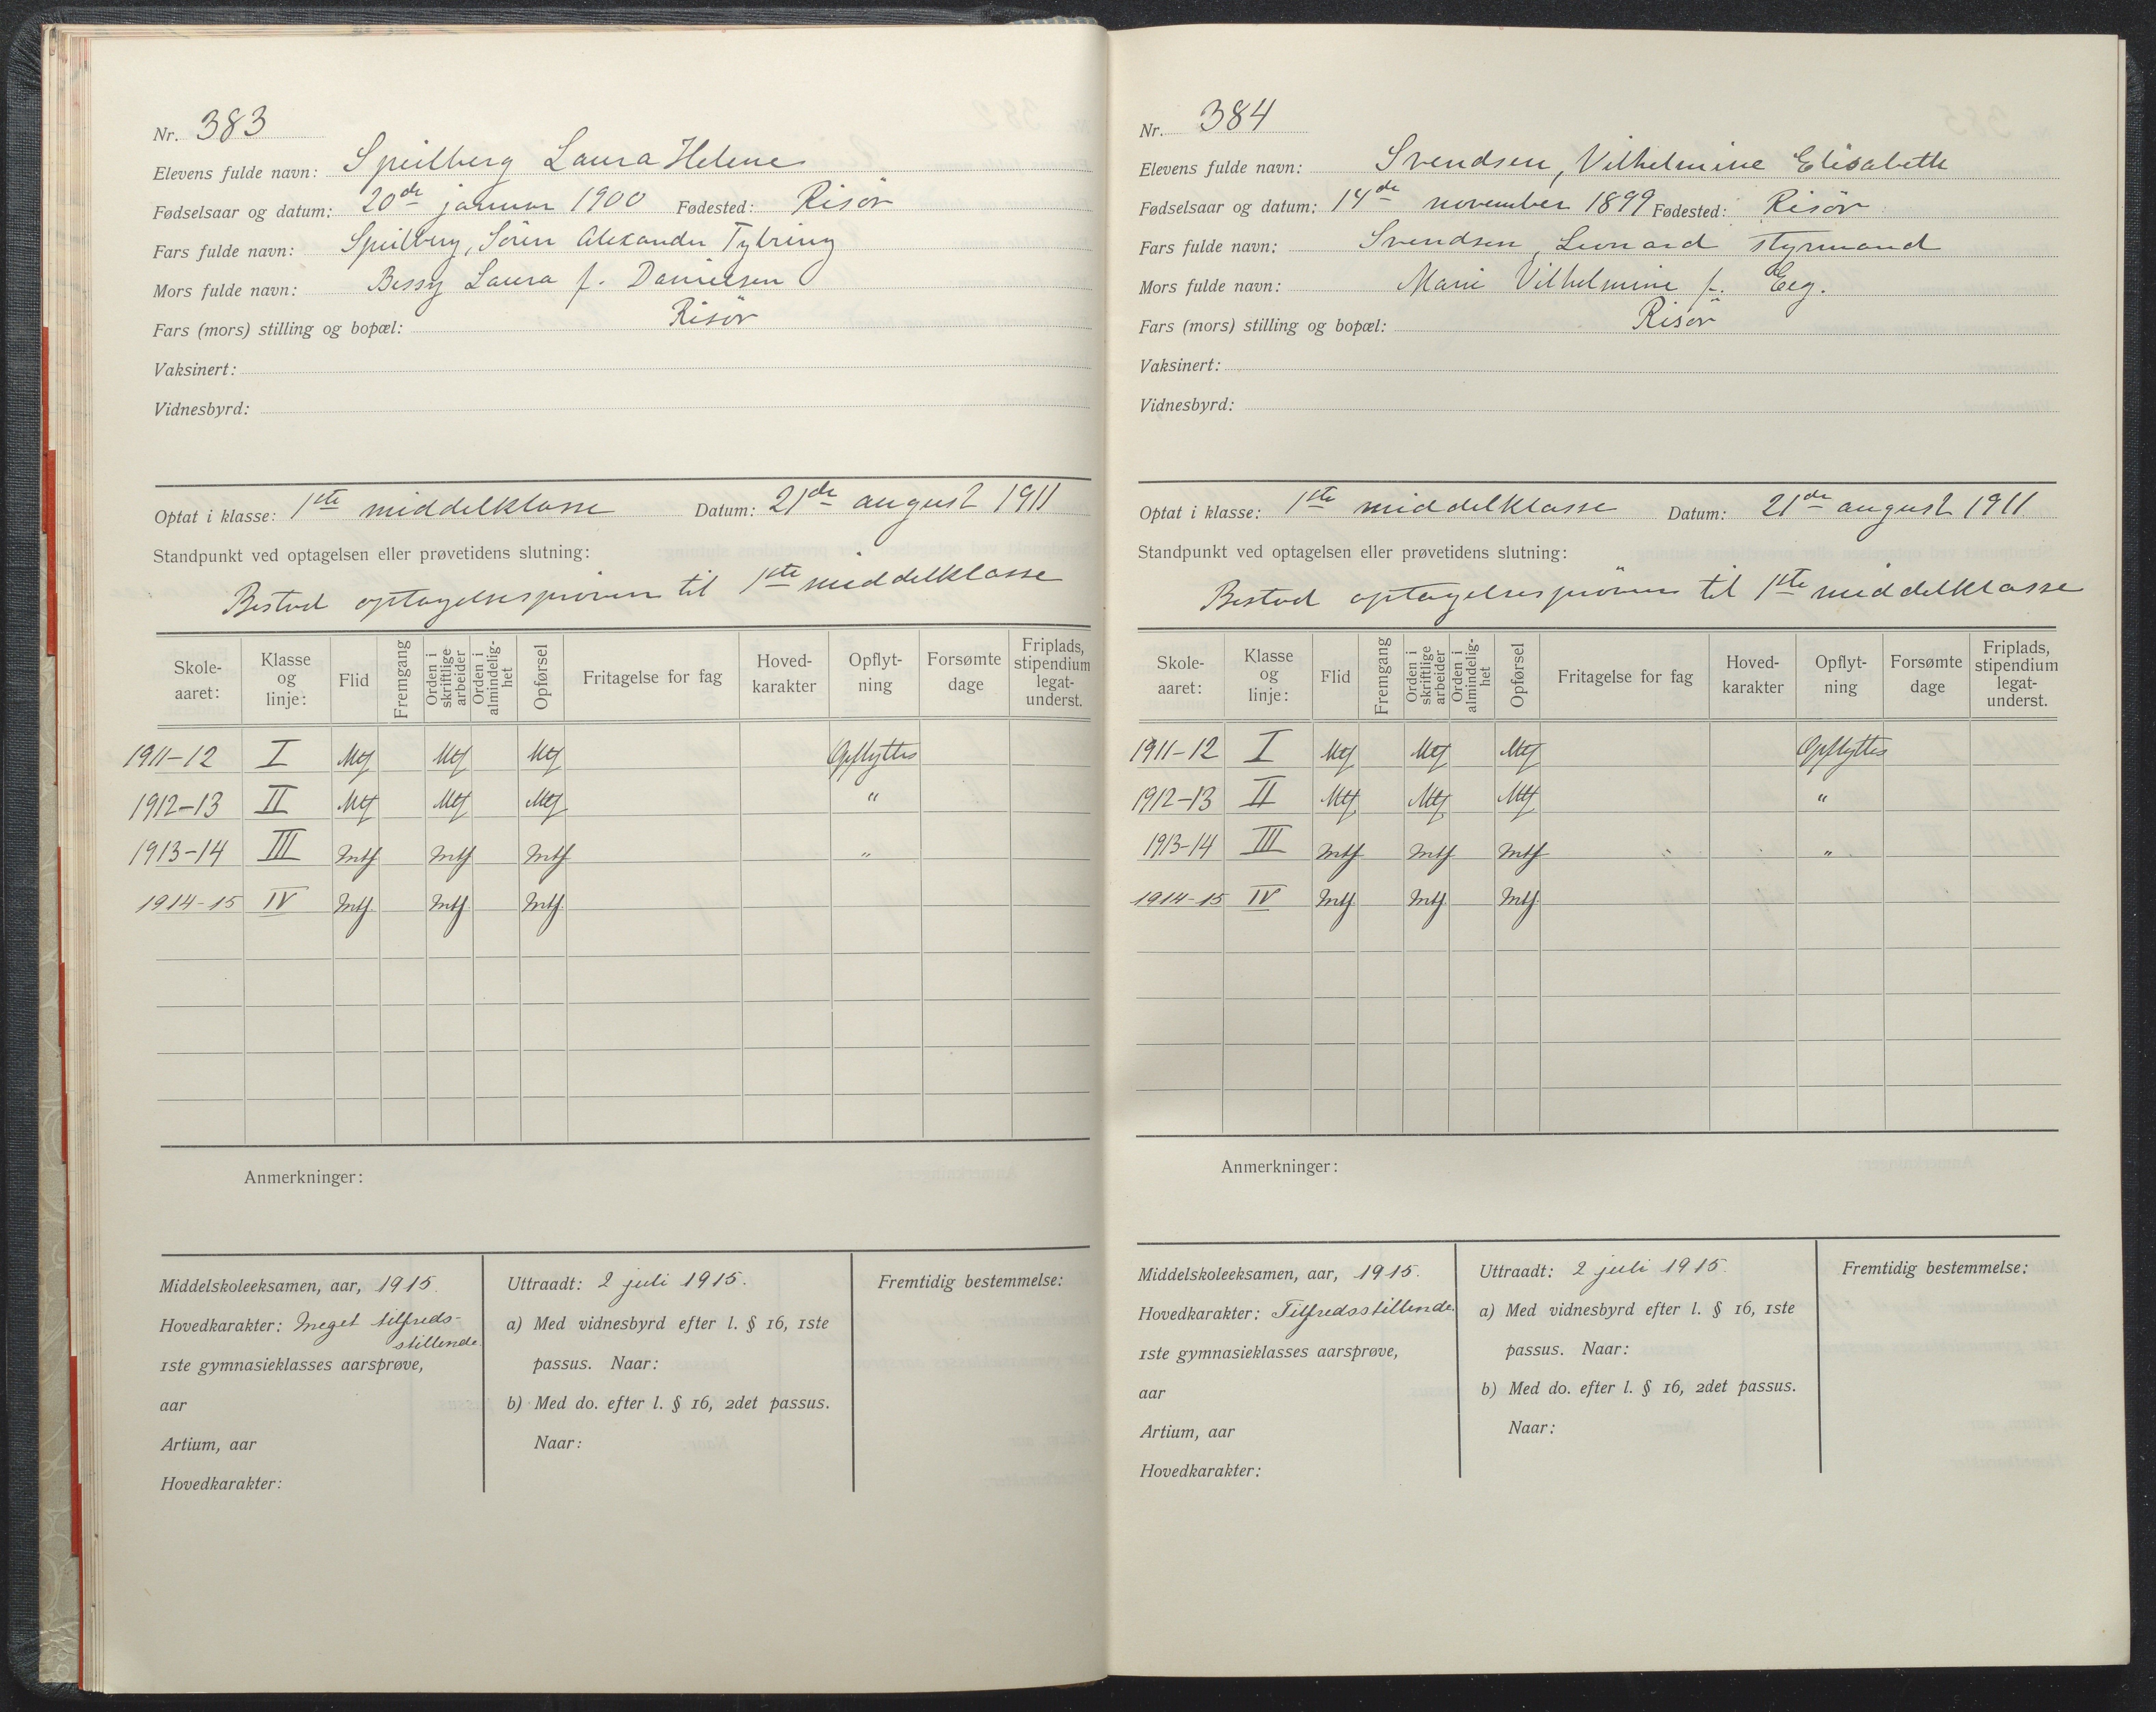 Nr. 383
Elevens fulde navn: Speilberg Laura Helene
Fødselsaar og datum: 20de januar 1900 Fødested: Risör
Fars fulde navn: Speilberg, Sören Alexander Tybring
Mors fulde navn: Bessy Laura f. Danielsen
Fars (mors) stilling og bopæl: Risör
Vaksinert:
Vidnesbyrd:
Optat i klasse: 1ste middelklasse Datum: 21de august 1911
Standpunkt ved optagelsen eller prøvetidens slutning:
Bestod optagelsespröven til 1ste middelklasse
Skole-aaret: Klasse og linje: Flid Fremgang Orden i skriftlige arbeider Orden i almindelig-het Opførsel Fritagelse for fag Hoved-karakter Opflyt-ning Forsømte dage Friplads, stipendium legat-underst.
1911-12 I Mtf Mtf Mtf Opflyttes
1912-13 II Mtf Mtf Mtf "
1913-14 III Mtf Mtf Mtf "
1914-15 IV Mtf Mtf Mtf
Anmerkninger:
Middelskoleeksamen, aar, 1915.
Hovedkarakter: Meget tilfreds-
stillende.
1ste gymnasieklasses aarsprøve,
aar
Artium, aar
Hovedkarakter:
Uttraadt: 2 juli 1915.
a) Med vidnesbyrd efter l. § 16, 1ste
passus. Naar:
b) Med do. efter l. § 16, 2det passus.
Naar:
Fremtidig bestemmelse:
Nr. 384
Elevens fulde navn: Svendsen, Vilhelmine Elisabeth
Fødselsaar og datum: 14de november 1899 Fødested: Risör
Fars fulde navn: Svendsen, Leonard styrmand
Mors fulde navn: Marie Vilhelmine f. Eeg.
Fars (mors) stilling og bopæl: Risör
Vaksinert:
Vidnesbyrd:
Optat i klasse: 1ste middelklasse Datum: 21de august 1911
Standpunkt ved optagelsen eller prøvetidens slutning:
Bestod optagelsespröven til 1ste middelklasse
Skole-aaret: Klasse og linje: Flid Fremgang Orden i skriftlige arbeider Orden i almindelig-het Opførsel Fritagelse for fag Hoved-karakter Opflyt-ning Forsømte dage Friplads, stipendium legat-underst.
1911-12 I Mtf Mtf Mtf Opflyttes
1912-13 II Mtf Mtf Mtf "
1913-14 III Mtf Mtf Mtf "
1914-15 IV Mtf Mtf Mtf
Anmerkninger:
Middelskoleeksamen, aar, 1915.
Hovedkarakter: Tilfredsstillende.
1ste gymnasieklasses aarsprøve,
aar
Artium, aar
Hovedkarakter:
Uttraadt: 2 juli 1915.
a) Med vidnesbyrd efter l. § 16, 1ste
passus. Naar:
b) Med do. efter l. § 16, 2det passus.
Naar:
Fremtidig bestemmelse: